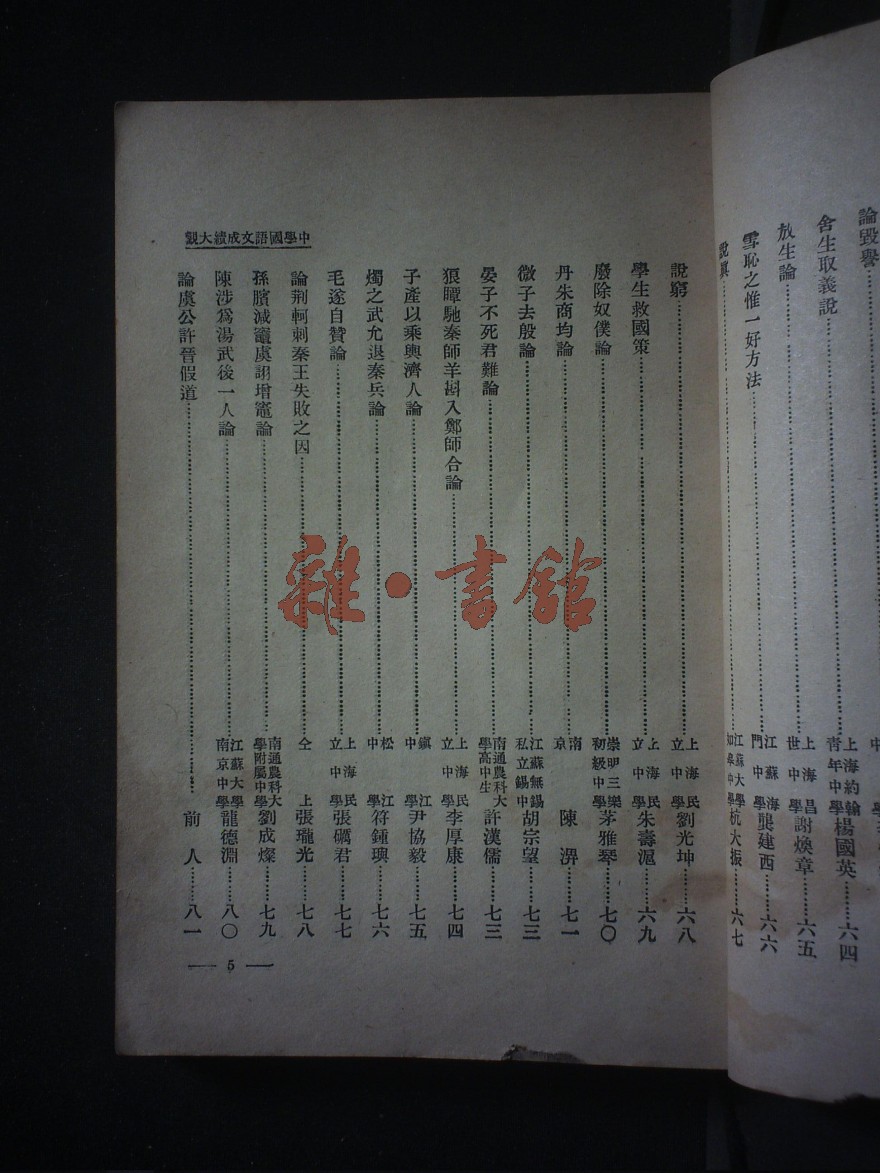 論毀譽
舍生取義說……上海約翰青年中學楊國英……六四
放生論……上海昌世中學謝煥章……六五
雪恥之惟一好方法……江蘇海門中學龔建西……六六
說真……江蘇大學如皋中學杭大振……六七
中學國語文成績大觀
說窮……上海民立中學劉光坤……六八
學生救國策……上海民立中學朱壽滬……六九
廢除奴僕論……崇明三樂初級中學茅雅琴……七〇
丹朱商均論……南京陳淠……七一
微子去殷論……江蘇無錫私立錫中胡宗望……七三
晏子不死君難論……南通農科大學高中生許漢儒……七三
狼瞫馳秦師羊斟入鄭師合論……上海民立中學李厚康……七四
子產以乘輿濟人論……鎮江中學尹協毅……七五
燭之武允退秦兵論……松江中學符鍾璵……七六
毛遂自贊論……上海民立中學張礪君……七七
論荆軻刺秦王失敗之因……仝上張瓏光……七八
孫臏減竈虞詡增竈論……南通農科大學附屬中學劉成燦……七九
陳涉爲湯武後一人論……江蘇大學南京中學龍德淵……八〇
論虞公許晉假道……前人……八一
5
雜·書館